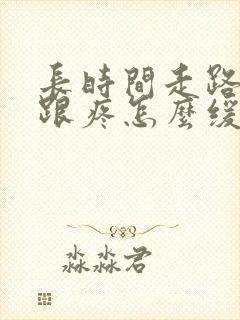 長時間走路
跟疼怎麼緩
淼淼君